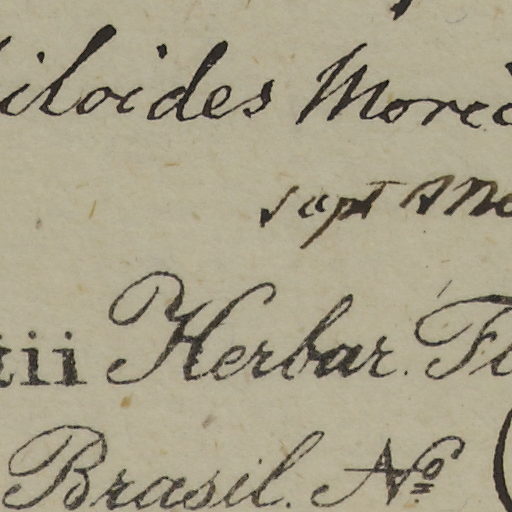 iloides Moric
sept
tii Herbar. Fl
Brasil. Nº (